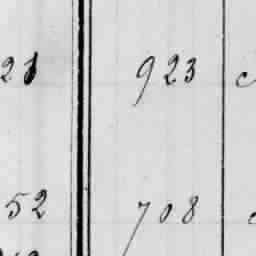 21 923
52 708